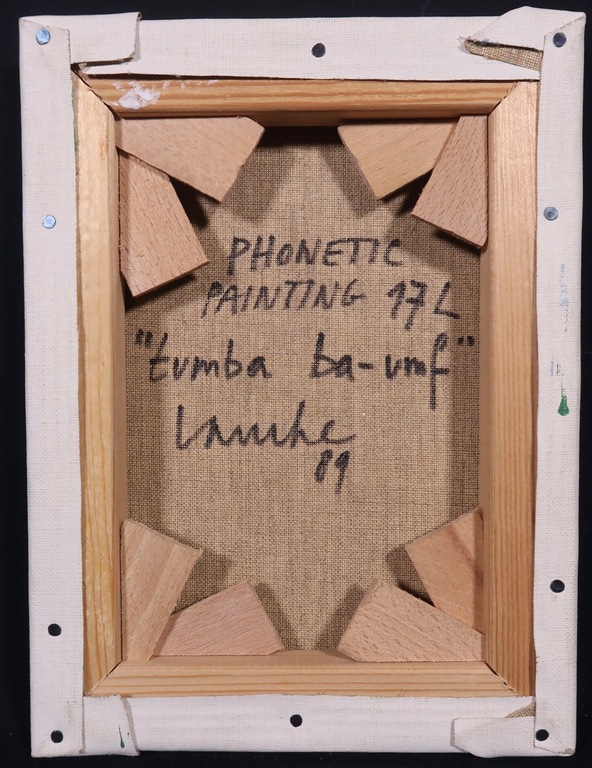 PHONETIC
PAINTING 97 L
"tumba ba-umf"
89